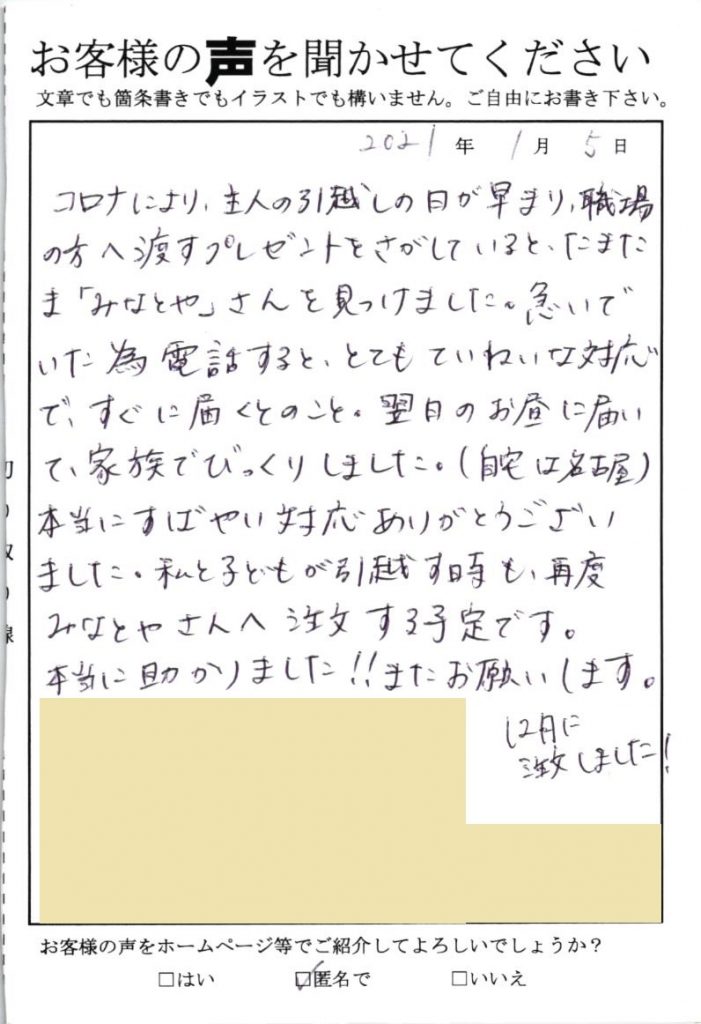 お客様の声を聞かせてください
文章でも箇条書きでもイラストでも構いません。ご自由にお書き下さい。
2021年1月5日
コロナにより、主人の引越しの日が早まり、職場
の方へ渡すプレゼントをさがしていると、たまた
ま「みなとや」さんを見つけました。急いで
いた為電話すると、とてもていねいな対応
で、すぐに届くとのこと。翌日のお昼に届い
て、家族でびっくりしました。(自宅は名古屋)
本当にすばやい対応ありがとうござい
ました。私と子どもが引越す時も、再度
みなとやさんへ注文する予定です。
本当に助かりました!!またお願いします。
12月に
注文しました!
お客様の声をホームページ等でご紹介してよろしいでしょうか?
□はい ☑匿名で □いいえ